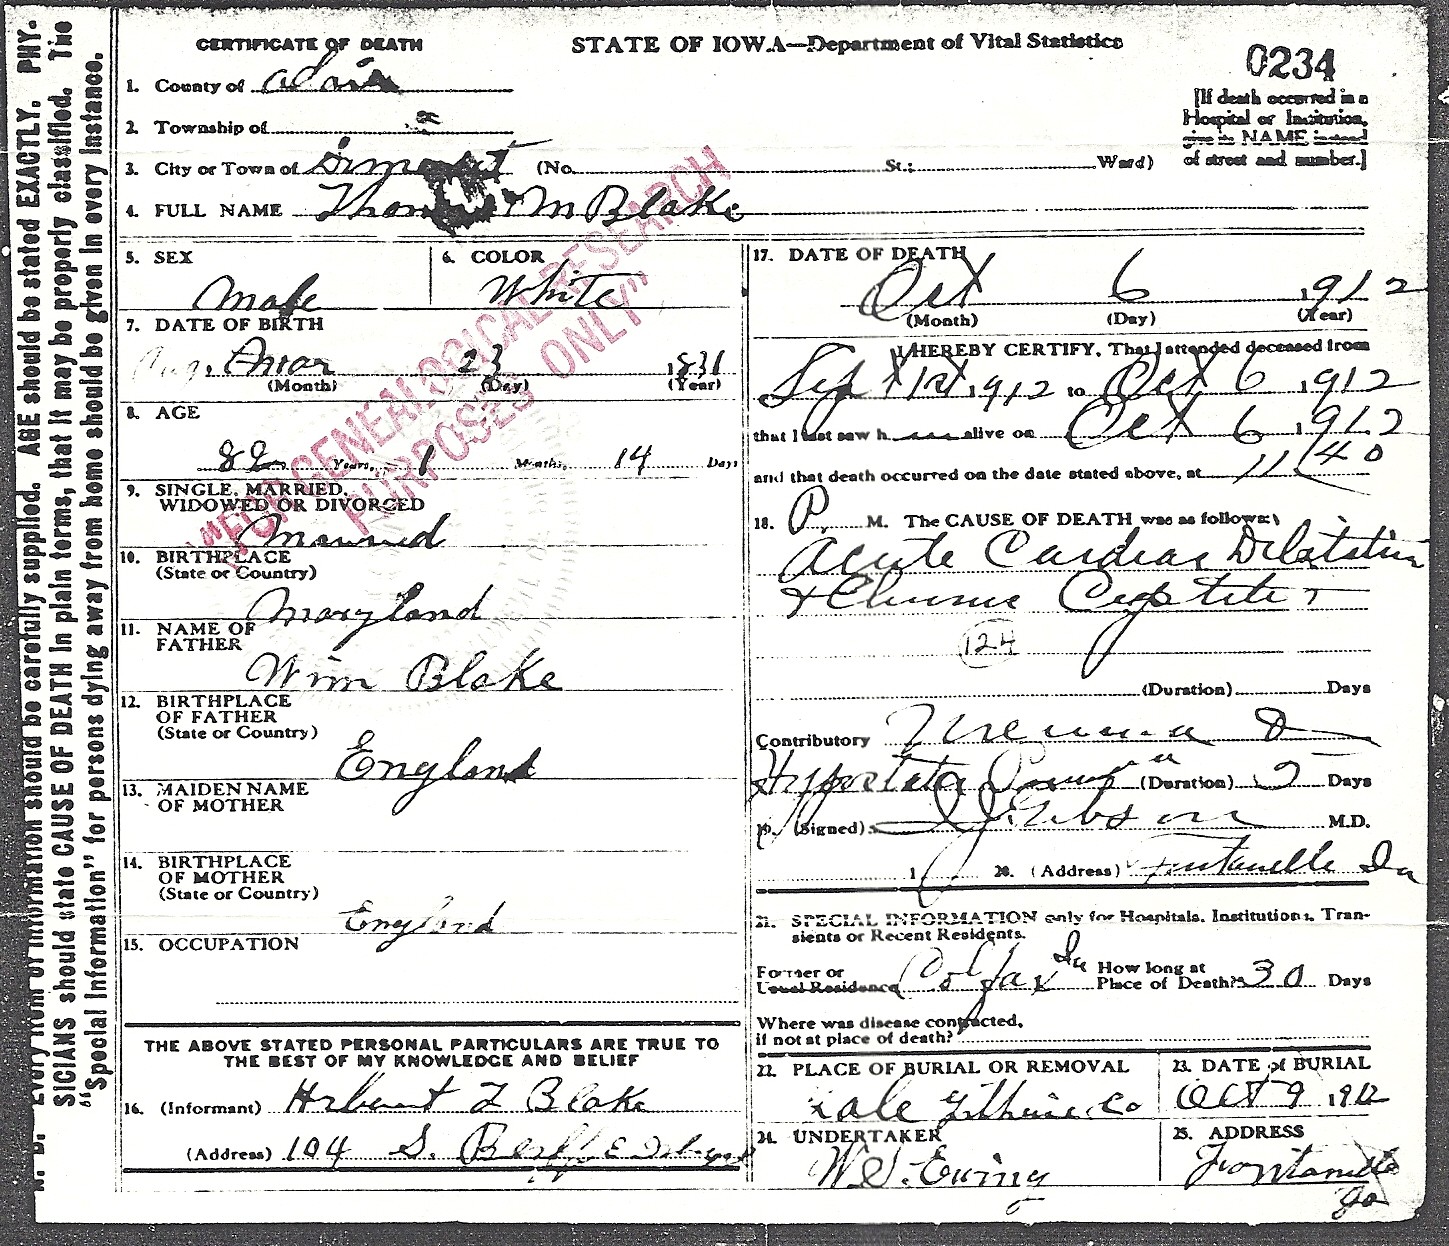 N. B. Every item of information should be carefully supplied. AGE should be stated EXACTLY. PHY-
SICIANS should state CAUSE OF DEATH in plain terms, that it may be properly classified. The
"Special Information" for persons dying away from home should be given in every instance.
CERTIFICATE OF DEATH
STATE OF IOWA—Department of Vital Statistics
0234
[If death occurred in a
Hospital or Institution,
give its NAME instead
of street and number.]
1. County of Adair
2. Township of
3. City or Town of (No. St.; Ward)
4. FULL NAME Thomas M Blake
"FOR GENEALOGICAL RESEARCH
PURPOSES ONLY"
5. SEX
Male
6. COLOR
White
7. DATE OF BIRTH
23 1831
(Month) (Day) (Year)
8. AGE
82 Years, 1 Months, 14 Days
9. SINGLE, MARRIED,
WIDOWED OR DIVORCED
Married
10. BIRTHPLACE
(State or Country)
Maryland
11. NAME OF
FATHER
Wm Blake
12. BIRTHPLACE
OF FATHER
(State or Country)
England
13. MAIDEN NAME
OF MOTHER
14. BIRTHPLACE
OF MOTHER
(State or Country)
England
15. OCCUPATION
THE ABOVE STATED PERSONAL PARTICULARS ARE TRUE TO
THE BEST OF MY KNOWLEDGE AND BELIEF
16. (Informant) Herbert L Blake
(Address) 104 S.
17. DATE OF DEATH
Oct 6 1912
(Month) (Day) (Year)
I HEREBY CERTIFY, That I attended deceased from
Sept 1st, 1912 to Oct 6 1912
that I last saw h alive on Oct 6 1912
and that death occurred on the date stated above, at 11/40
18. P. M. The CAUSE OF DEATH was as follows:
Acute Cardiac Dilatation
+ Chronic Cystitis
124
(Duration) Days
Contributory Uremia
Hypostatic Pneumonia (Duration) 2 Days
19. (Signed) Gibson M.D.
1 20. (Address) Fontanelle Ia
21. SPECIAL INFORMATION only for Hospitals, Institutions, Tran-
sients or Recent Residents.
Former or
Usual Residence Colfax Ia
How long at
Place of Death? 30 Days
Where was disease contracted,
if not at place of death?
22. PLACE OF BURIAL OR REMOVAL
Yale Guthrie Co
23. DATE of BURIAL
Oct 9 1912
24. UNDERTAKER
W.S. Ewing
25. ADDRESS
Fontanelle
Ia